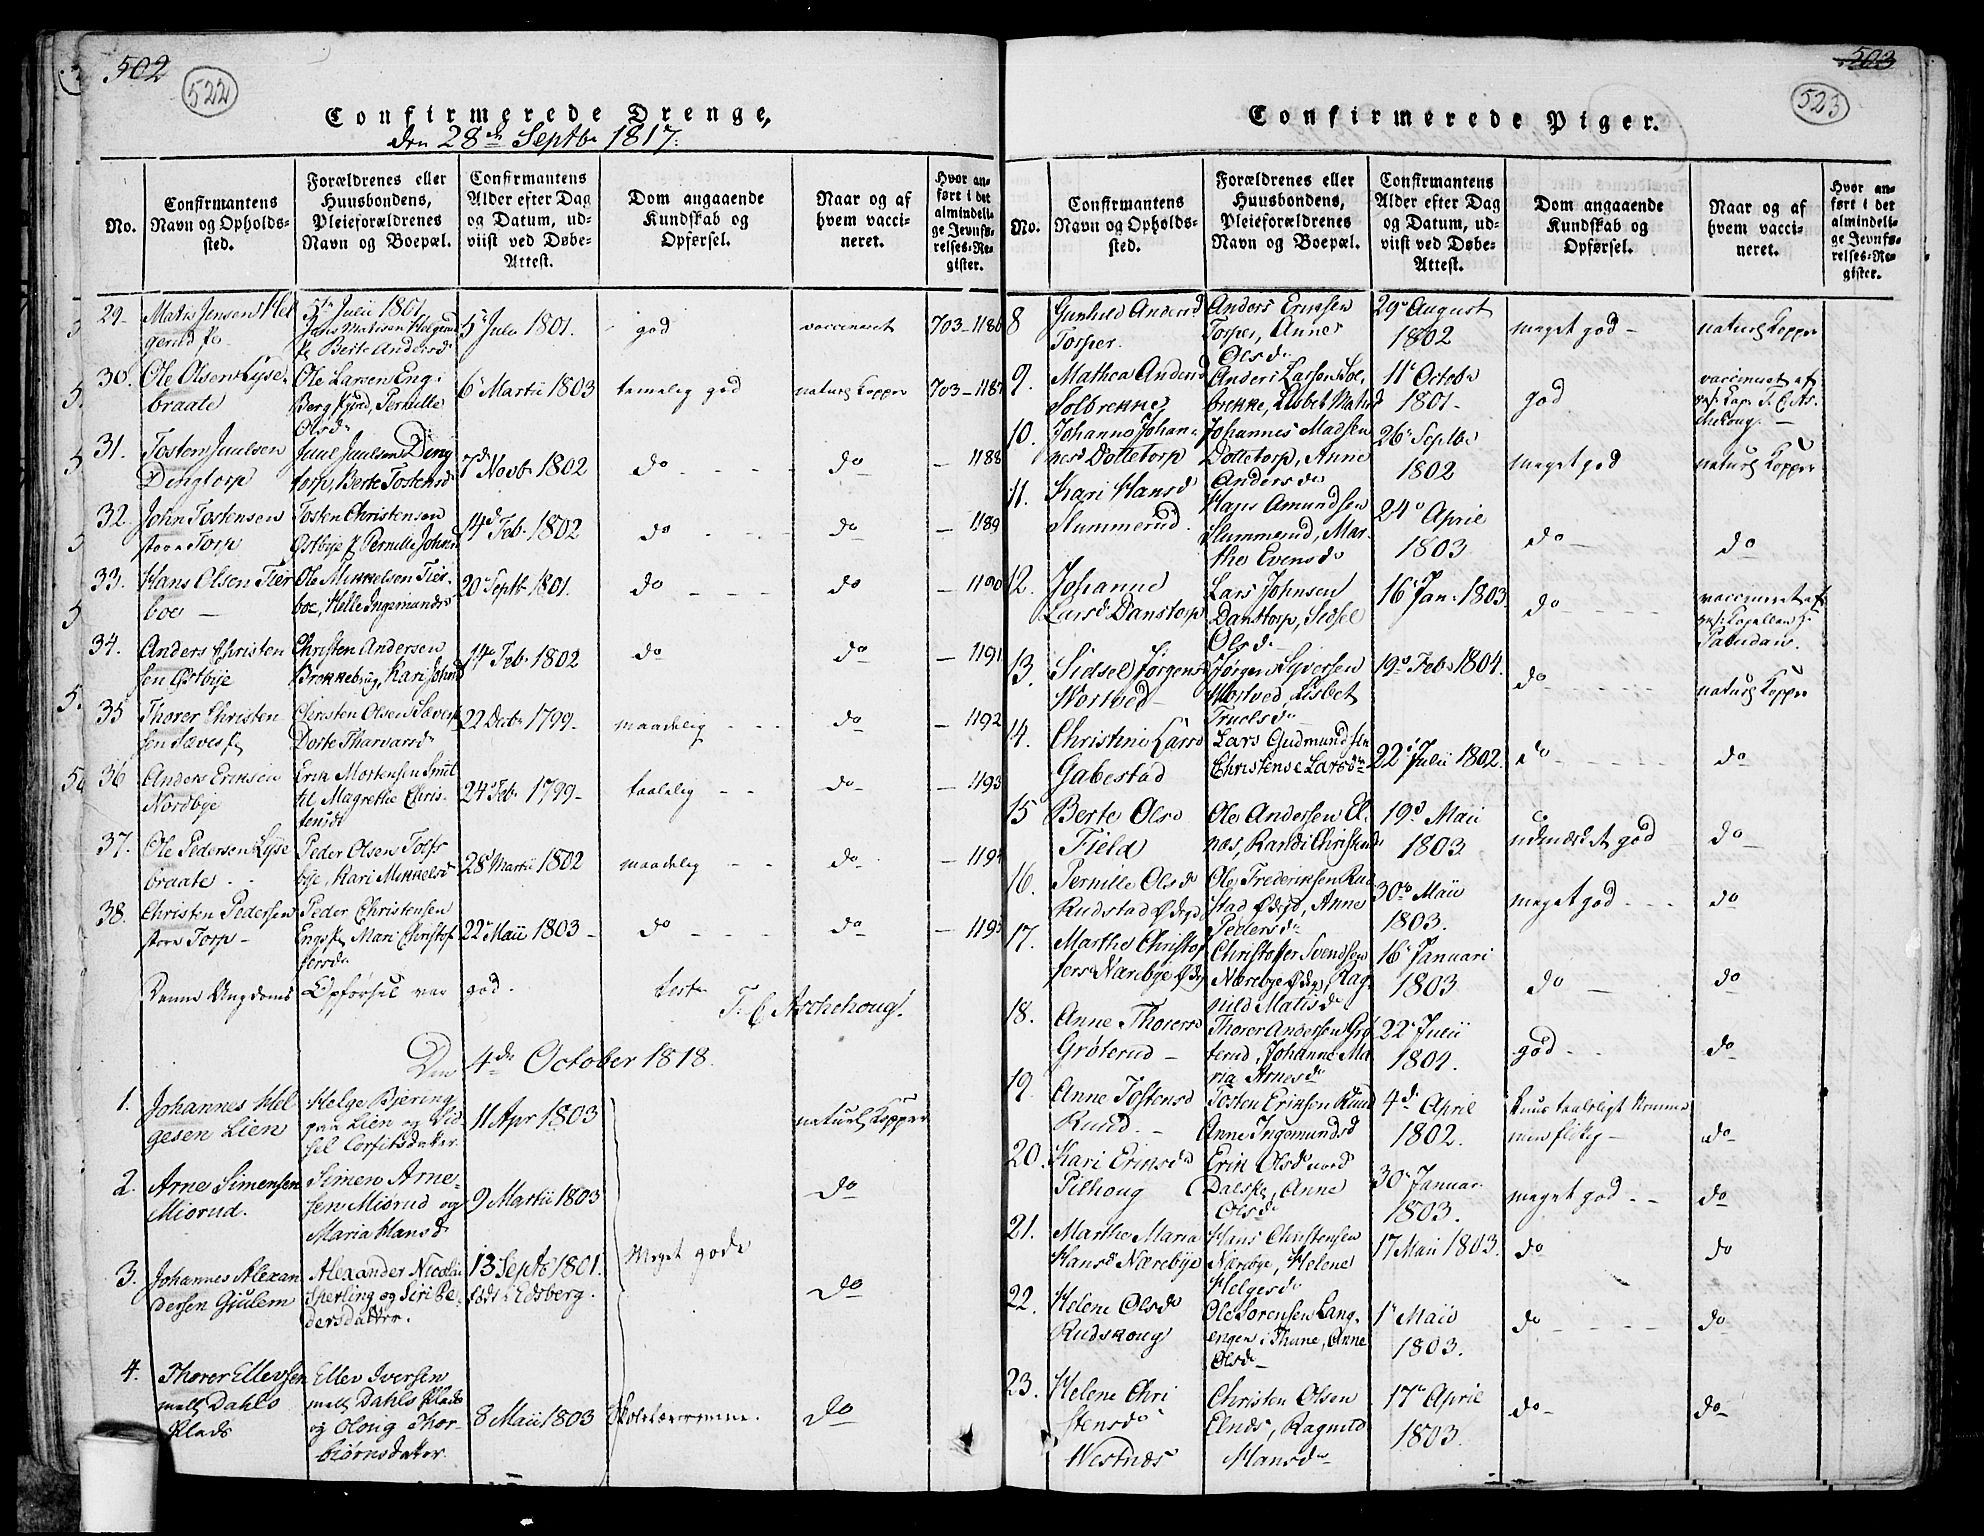 502
522
Confirmerede Drenge,
den 28de Septbr 1817.
No.
Confirmantens
Navn og Opholds-
sted.
Forældrenes eller
Huusbondens,
Pleieforældrenes
Navn og Boepæl.
Confirmantens
Alder efter Dag
og Datum, ud-
viist ved Døbe-
Attest.
Dom angaaende
Kundskab og
Opførsel.
Naar og af
hvem vacci-
neret.
Hvor an-
ført i det
almindeli-
ge Jevnfø-
relses-Re-
gister.
29. Matis Jensen
5te Julii 1801
Jens Matisen
Berte Andersd
5 Julii 1801.
god
vaccineret
703-1186
30. Ole Olsen Lyse-
braate
Ole Larsen Eng
Berg Pernille
Olsd
6 Martii 1803
temelig god
naturl Kopper
703-1187
31. Tosten Juulsen
Dingtorp
Juul Juulsen Ding
torp, Berte Tostensd
7d Novbr 1802
do
do
1188
32. John Tostensen
store Torp
Tosten Christensen
Østbye Pernille Johnsd
14d Feb. 1802
do
do
1189
33. Hans Olsen Tier
boe
Ole Mikkelsen Tier-
boe, Helle Ingemundsd
20 Septb 1801.
do
do
1190
34. Anders Christen
sen Østbye
Christen Andersen
Brekkebug, Kari Johnsd
14de Feb. 1802
do
do
1191
35 Thorer Christen
sen
Christen Olsen
Dorte
22 Decbr 1799
maadelig
do
1192
36 Anders Eriksen
Nordbye
Erik Mortensen
Magrethe Chris-
tensd
24 Feb. 1799
taalelig
do
1193
37. Ole Pedersen Lyse
braate
Peder Olsen Tofs-
bye, Kari Mikkelsd
28d Martii 1802
maadelig
do
1194
38. Christen Pedersen
store Torp
Peder Christensen
Mari Christof
fersd
22 Maii 1803
do
do
1195
Denne Ungdoms Opførsel var god.
test
T. C. Aschehoug.
Den 4de October 1818.
1. Johannes Hel
gesen Lien
Helge Biering
Lien og Sid
sel Corfitsdatter.
11 Apr 1803
naturl Kopper
2. Arne Simensen
Miørud.
Simen Arne-
sen Miørud og
Maria Hansd
9 Martii 1803
do
3. Johannes Alexan
dersen Gjulem
Alexander Nicolai
Sperling og Siri Pe-
dersdatter.
13 Septb 1801.
født i Edsberg.
Meget gode
do
4. Thorer Ellevsen
mell Dahls
Plads
Ellev Iversen
mell Dahls Plads
og Oloug Thor-
biørnsdatter.
8 Maii 1803
do
503
523
Confirmerede Piger.
No.
Confirmantens
Navn og Opholds-
sted.
Forældrenes eller
Huusbondens,
Pleieforældrenes
Navn og Boepæl.
Confirmantens
Alder efter Dag
og Datum, ud-
viist ved Døbe-
Attest.
Dom angaaende
Kundskab og
Opførsel.
Naar og af
hvem vacci-
neret.
Hvor an-
ført i det
almindeli-
ge Jevnfø-
relses-Re-
gister.
8 Gunhild Andersd
Torper.
Anders Eriksen
Torper, Anne
Olsd
29 August
1802
meget god
naturl Kopper
9. Mathea Andersd
Solbrekke
Anders Larsen Sol-
brekke, Lisbet Matisd
11 Octobr
1801
god
vaccineret af
T. C. As-
chehoug
10. Johanne Johan-
nesd Dottetorp
Johannes Madsen
Dottetorp, Anne
Andersd
26 Septbr
1802
meget god
naturl Kopper
11. Kari Hansd
Slummerud
Hans Amundsen
Slummerud, Mar-
the Evensd
24 April
1803
do
do
12. Johanne
Larsd Danstorp
Lars Johnsen
Danstorp, Sidsel
Olsd
16 Jan. 1803.
do
vaccineret af
13. Sidsel Jørgens
Hortved
Jørgen Syversen
Hortved, Lisbet
Truelsd
19 Feb. 1804.
do
naturl Kopper
14. Christine Larsd
Gabestad
Lars Gudmundsen
Christense Larsd
22 Julii 1802.
do
do
15 Berte Olsd
Field
Ole Andersen El-
næs, Randi Christensd
19d Maii
1803
udmærket god
do
16. Pernille Olsd
Rudstad Ødegd
Ole Frederiksen Rud
stad Ødegd, Anne
Pedersd
30 Maii
1803.
meget god
do
17. Marthe Christof
fers Nærebye Ødeg
Christoffer Svendsen
Nærebye Ødeg, Rag-
nild Matisd
16 Januari
1803
do
do
18. Anne Thorersd
Grøterud
Thorer Andersen Grø
terud, Johanne Ma
ria Arnesd
22 Julii
1804.
god
do
19. Anne Tostensd
Ruud.
Tosten Eriksen Ruud
Anne Ingemundsd
4d April
1802.
do
20. Kari Eriksd
Pilhoug
Erik Olsen nord
Anne
Olsd
30 Januar
1803.
meget god
do
21. Marthe Maria
Hansd Nærebye
Hans Christensen
Nærebye, Helene
Helgesd
17 Maii 1803.
do
do
22. Helene Olsd
Rudskoug
Ole Sørensen Lang-
engen i Thune, Anne
Olsd
1 Maii
1803.
do
do
23. Helene Chri
stensd
Westnæs
Christen Olsen
Elnæs, Ragnild
Hansd
17 April
1803.
do
do